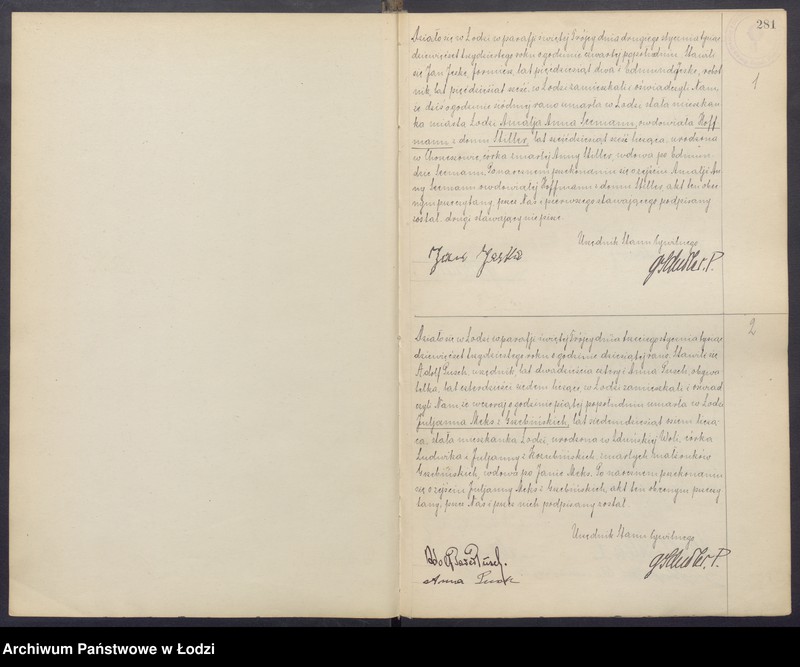 281
1
Działo się w Łodzi w parafji świętej Trójcy dnia drugiego stycznia tysiąc
dziewięćset trzydziestego roku o godzinie czwartej popołudniu. Stawili
się Jan Jeske, lat pięćdziesiąt dwa i Edmund Jeske, robot
nik, lat pięćdziesiąt sześć, w Łodzi zamieszkali i oświadczyli Nam
że dziś o godzinie siódmej rano umarła w Łodzi stała mieszkan
ka miasta Łodzi Amalja Anna Seemann, owdowiała Hoff
mann z domu Hiller, lat sześćdziesiąt sześć licząca, urodzona
w córka zmarłej Anny Hiller, wdowa po Edmun
dzie Seemann. Po naocznem przekonaniu się o zejściu Amalji An
ny Seemann owdowiałej Hoffmann z domu Hiller, akt ten obec
nym przeczytany, przez Nas i pierwszego stawającego podpisany
został, drugi stawający nie pisze.
Urzędnik Stanu Cywilnego
Jan Jeske
G Schedler. P.
2
Działo się w Łodzi w parafji świętej Trójcy dnia trzeciego stycznia tysiąc
dziewięćset trzydziestego roku o godzinie dziesiątej rano. Stawili się
Adolf urzędnik, lat dwadzieścia cztery i Anna obywa
telka, lat czterdzieści siedem licząca, w Łodzi zamieszkali i oświad
czyli Nam że wczoraj o godzinie piątej popołudniu umarła w Łodzi
Juljanna Meks z lat siedemdziesiąt osiem liczą
ca, stała mieszkanka Łodzi, urodzona w Zduńskiej Woli, córka
Ludwika i Juljanny z zmarłych małżonków
wdowa po Janie Meks. Po naocznem przekonaniu
się o zejściu Juljanny Meks z akt ten obecnym przeczy
tany, przez Nas i przez nich podpisany został.
Urzędnik Stanu Cywilnego
G Schedler. P.
Anna
Archiwum Państwowe w Łodzi